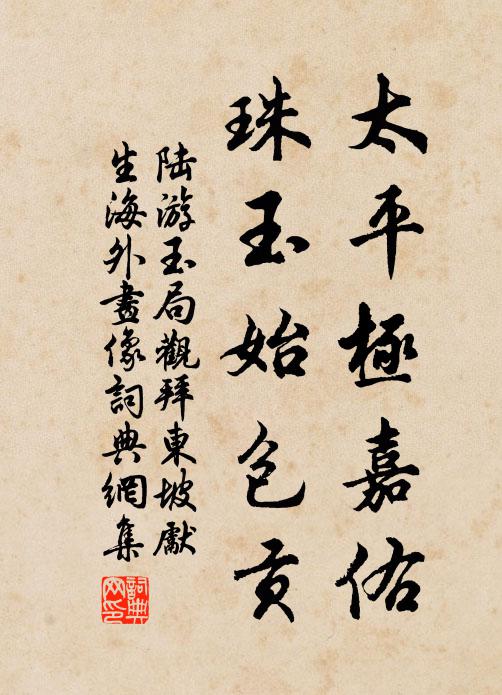 太平極嘉佑
珠玉始包貢
陸游玉局觀拜東坡獻
生海外畫像詞典網集
詞典
网印